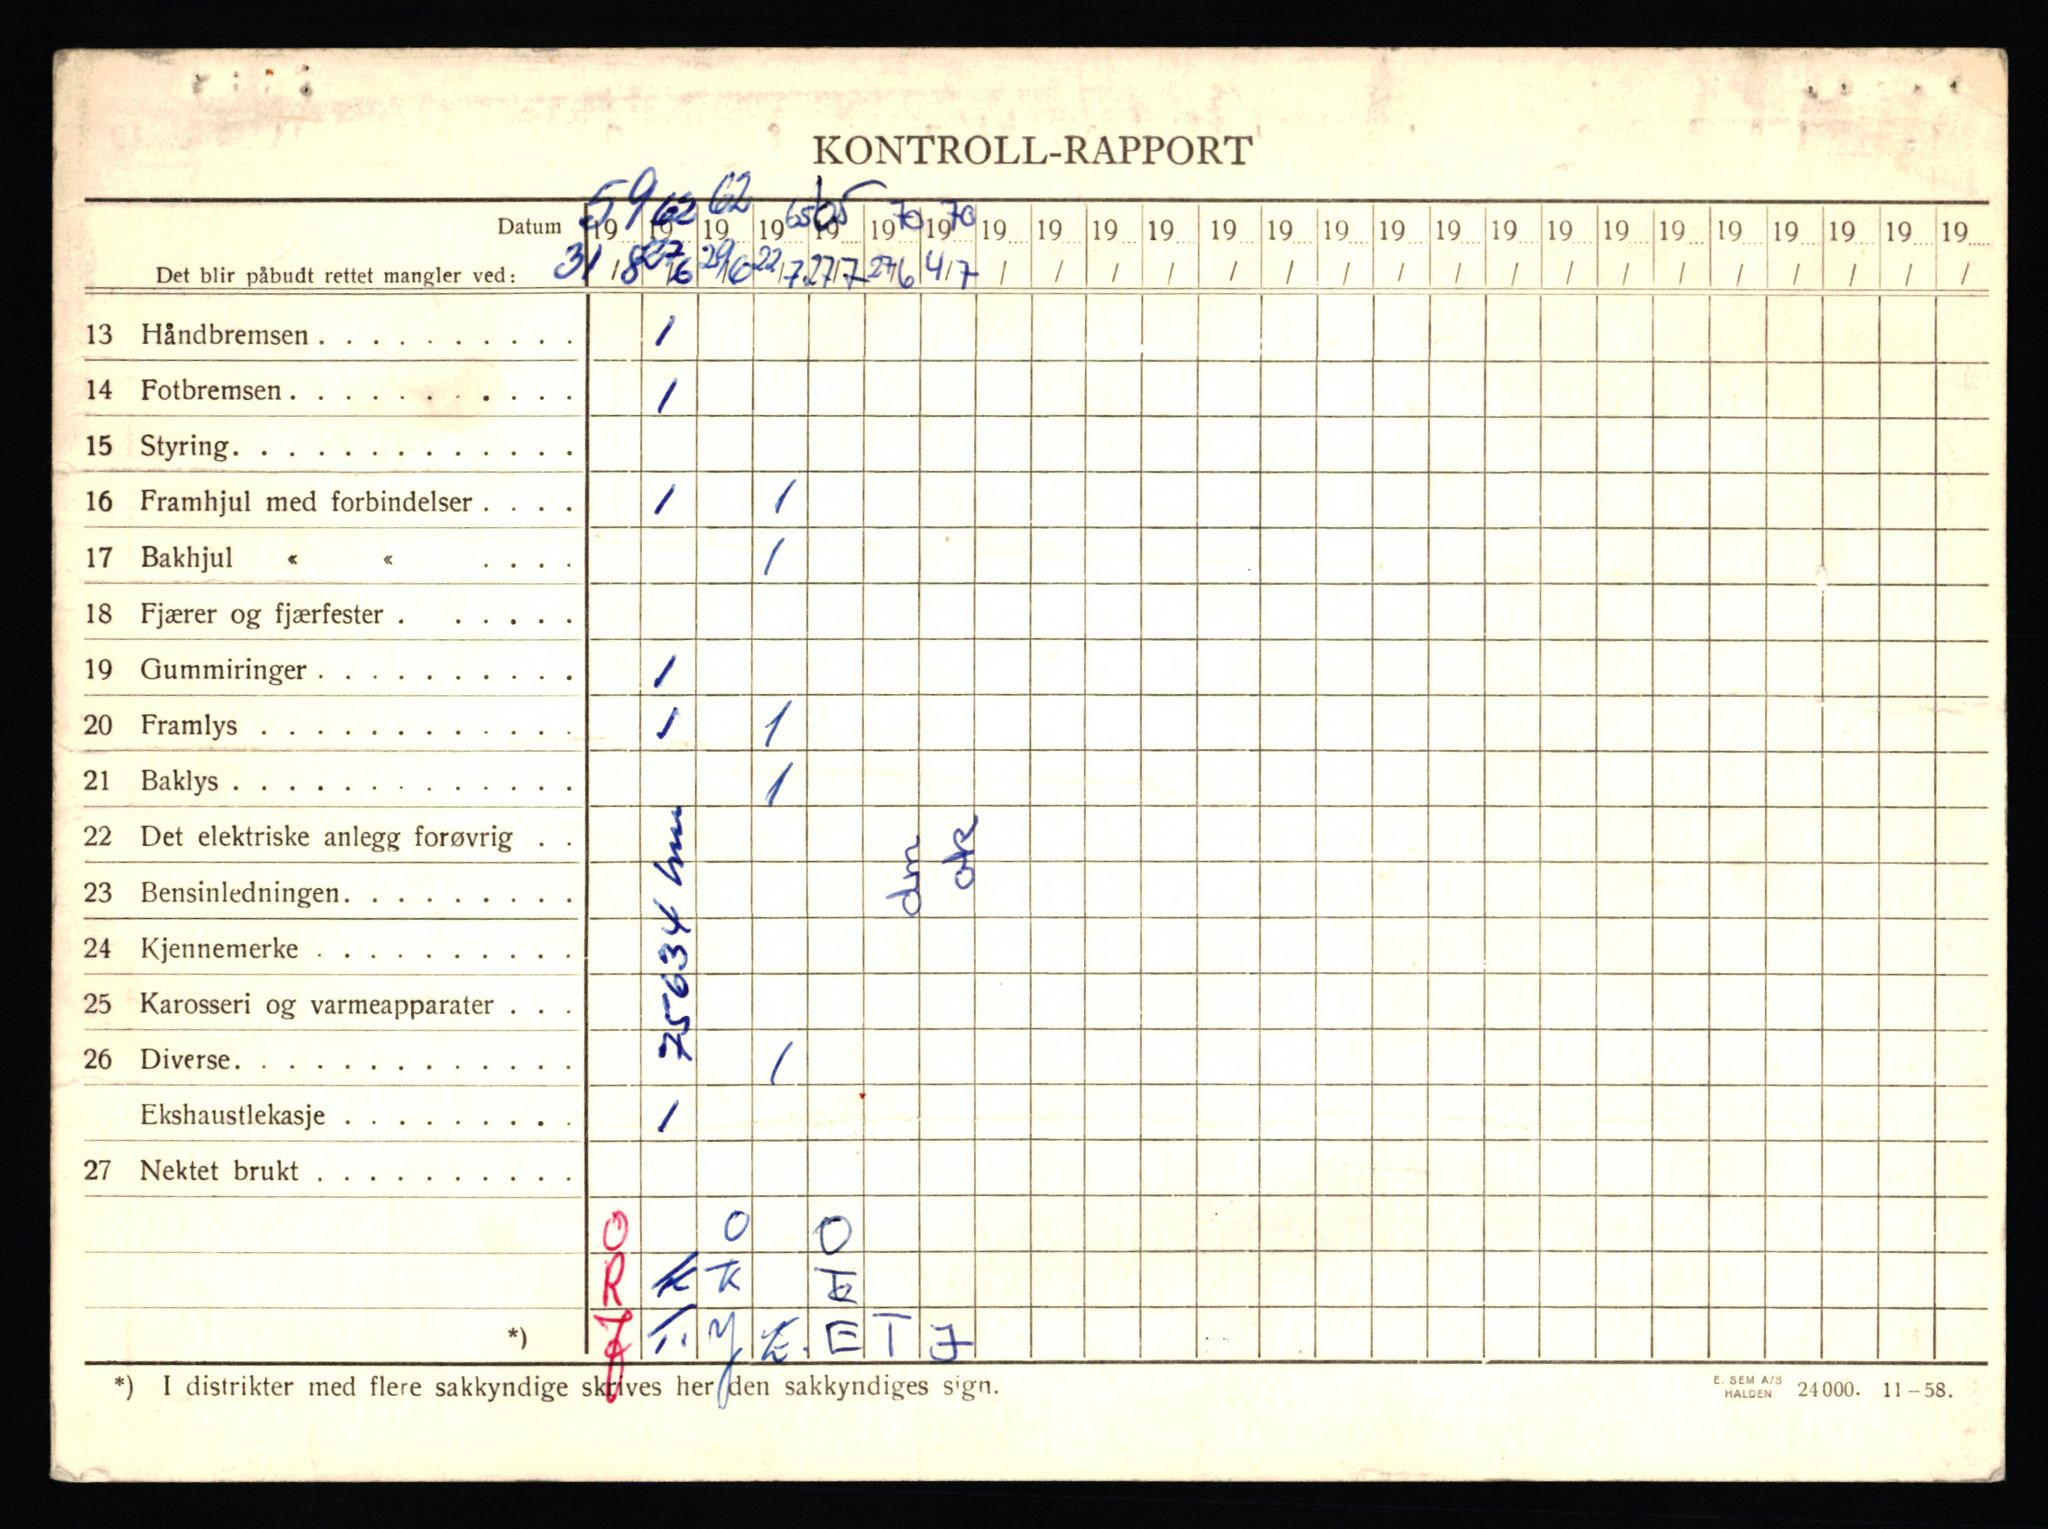 KONTROLL-RAPPORT
59 62 62 65 65 70 70
Datum 19 19 19 19 19 19 19 19 19 19 19 19 19 19 19 19 19 19 19 19 19 19 19 19 19
Det blir påbudt rettet mangler ved: 31/8 27/6 29/6 22/7 27/7 27/6 4/7 / / / / / / / / / / / / / / / / / /
13 Håndbremsen . . . . . . . . . . 1
14 Fotbremsen . . . . . . . . . . 1
15 Styring. . . . . . . . . . . . .
16 Framhjul med forbindelser . . . . 1 1
17 Bakhjul « « . . . . 1
18 Fjærer og fjærfester . . . . . .
19 Gummiringer . . . . . . . . . . 1
20 Framlys . . . . . . . . . . . . 1 1
21 Baklys . . . . . . . . . . . . . 1
22 Det elektriske anlegg forøvrig . .
23 Bensinledningen. . . . . . . . .
24 Kjennemerke . . . . . . . . . .
25 Karosseri og varmeapparater . . .
26 Diverse. . . . . . . . . . . . . 1
Ekshaustlekasje . . . . . . . . . 1
27 Nektet brukt . . . . . . . . . .
75634 km
dm
ok
O O O
R K K k
*) J T. E. E T J
*) I distrikter med flere sakkyndige skrives her den sakkyndiges sign.
E. SEM A/S
HALDEN 24000. 11-58.